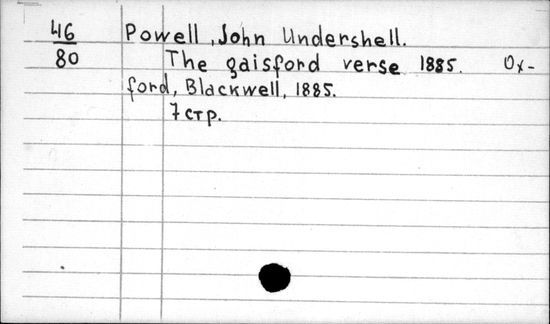 46 Powell, John Undershell.
80 The gaisford verse 1885. Ox-
ford, Blackwell, 1885.
7 стр.